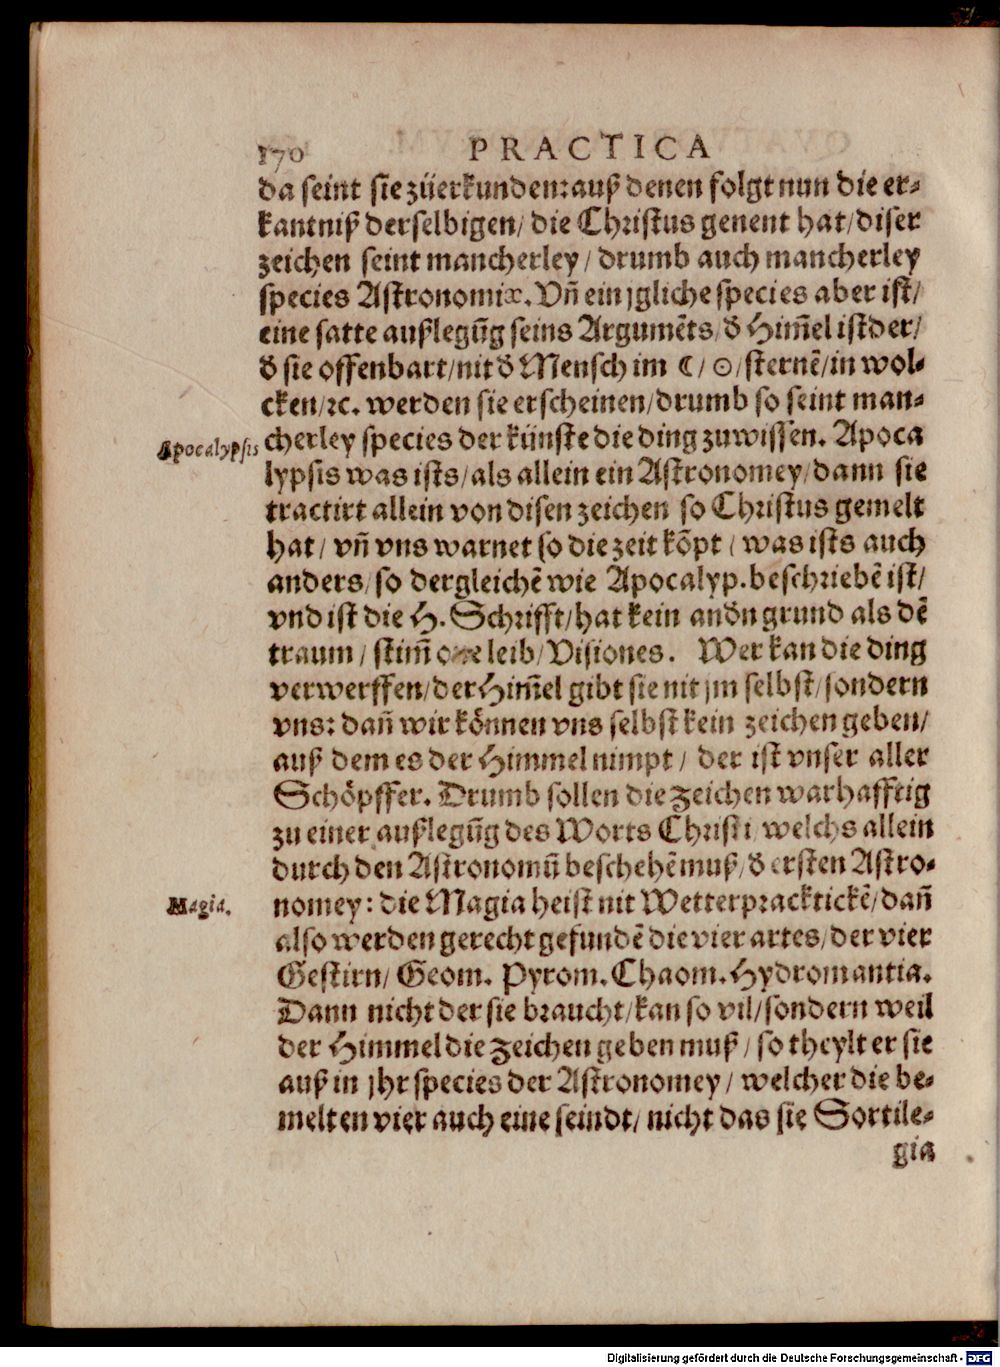 170 PRACTICA
da seint sie züerkunden:auß denen folgt nun die er-
kantniß derselbigen/ die Christus genent hat/diser
zeichen seint mancherley/ drumb auch mancherley
species Astronomiæ. Vñ ein jgliche species aber ist/
eine satte außlegũg seins Argumẽts/ď Him̃el ist der/
ď sie offenbart/nit ď Mensch im ☾/☉/sternẽ/in wol-
cken/ꝛc. werden sie erscheinen/drumb so seint man-
Apocalypsis cherley species der künste die ding zuwissen. Apoca
lypsis was ists/als allein ein Astronomey/dann sie
tractirt allein von disen zeichen so Christus gemelt
hat/ vñ vns warnet so die zeit kõpt/ was ists auch
anders/so dergleichẽ wie Apocalyp.beschriebẽ ist/
vnd ist die H. Schrifft/hat kein anďn grund als dẽ
traum/ stim̃ leib/Visiones. Wer kan die ding
verwerffen/der Him̃el gibt sie nit jm selbst/sondern
vns: dañ wir können vns selbst kein zeichen geben/
auß dem es der Himmel nimpt/ der ist vnser aller
Schöpffer. Drumb sollen die zeichen warhafftig
zu einer außlegũg des Worts Christi welchs allein
durch den Astronomũ beschehẽ muß/ď ersten Astro-
Magia. nomey: die Magia heist nit Wetterpracktickẽ/dañ
also werden gerecht gefundẽ die vier artes/der vier
Gestirn/ Geom. Pyrom. Chaom. Hydromantia.
Dann nicht der sie braucht/kan so vil/sondern weil
der Himmel die zeichen geben muß/ so theylt er sie
auß in jhr species der Astronomey/ welcher die be-
melten vier auch eine seindt/ nicht das sie Sortile-
gia
Digitalisierung gefördert durch die Deutsche Forschungsgemeinschaft - DFG